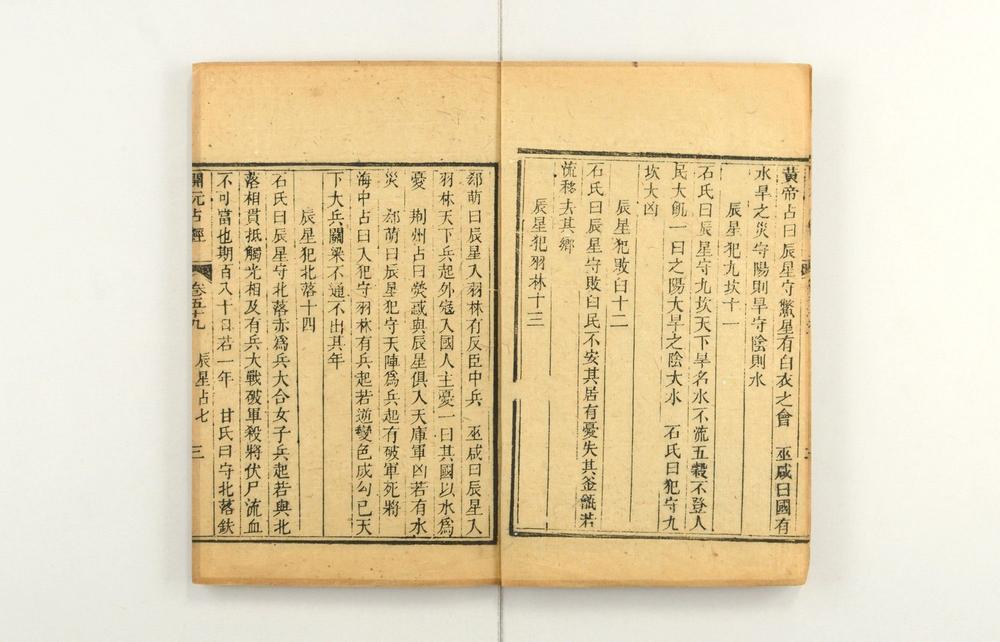 黃帝占曰辰星守鱉星有白衣之會　巫咸曰國有
水旱之災守陽則旱守陰則水
辰星犯九坎十一
石氏曰辰星守九坎天下旱名水不流五穀不登人
民大飢一曰之陽大旱之陰大水　石氏曰犯守九
坎大凶
辰星犯敗臼十二
石氏曰辰星守敗臼民不安其居有憂失其釜甑若
流移去其鄉
辰星犯羽林十三
郄萌曰辰星入羽林有反臣中兵　巫咸曰辰星入
羽林天下兵起外寇入國人主憂一曰其國以水爲
憂　荆州占曰熒惑與辰星俱入天庫軍凶若有水
災　郄萌曰辰星犯守天陣爲兵起有破軍死將
海中占曰入犯守羽林有兵起若逆變色成勾已天
下大兵關梁不通不出其年
辰星犯北落十四
石氏曰辰星守北落亦爲兵大合女子兵起若與北
落相貫抵觸光相及有兵大戰破軍殺將伏尸流血
不可當也期百八十日若一年　甘氏曰守北落鈇
開元占經　卷五十九　辰星占七　三